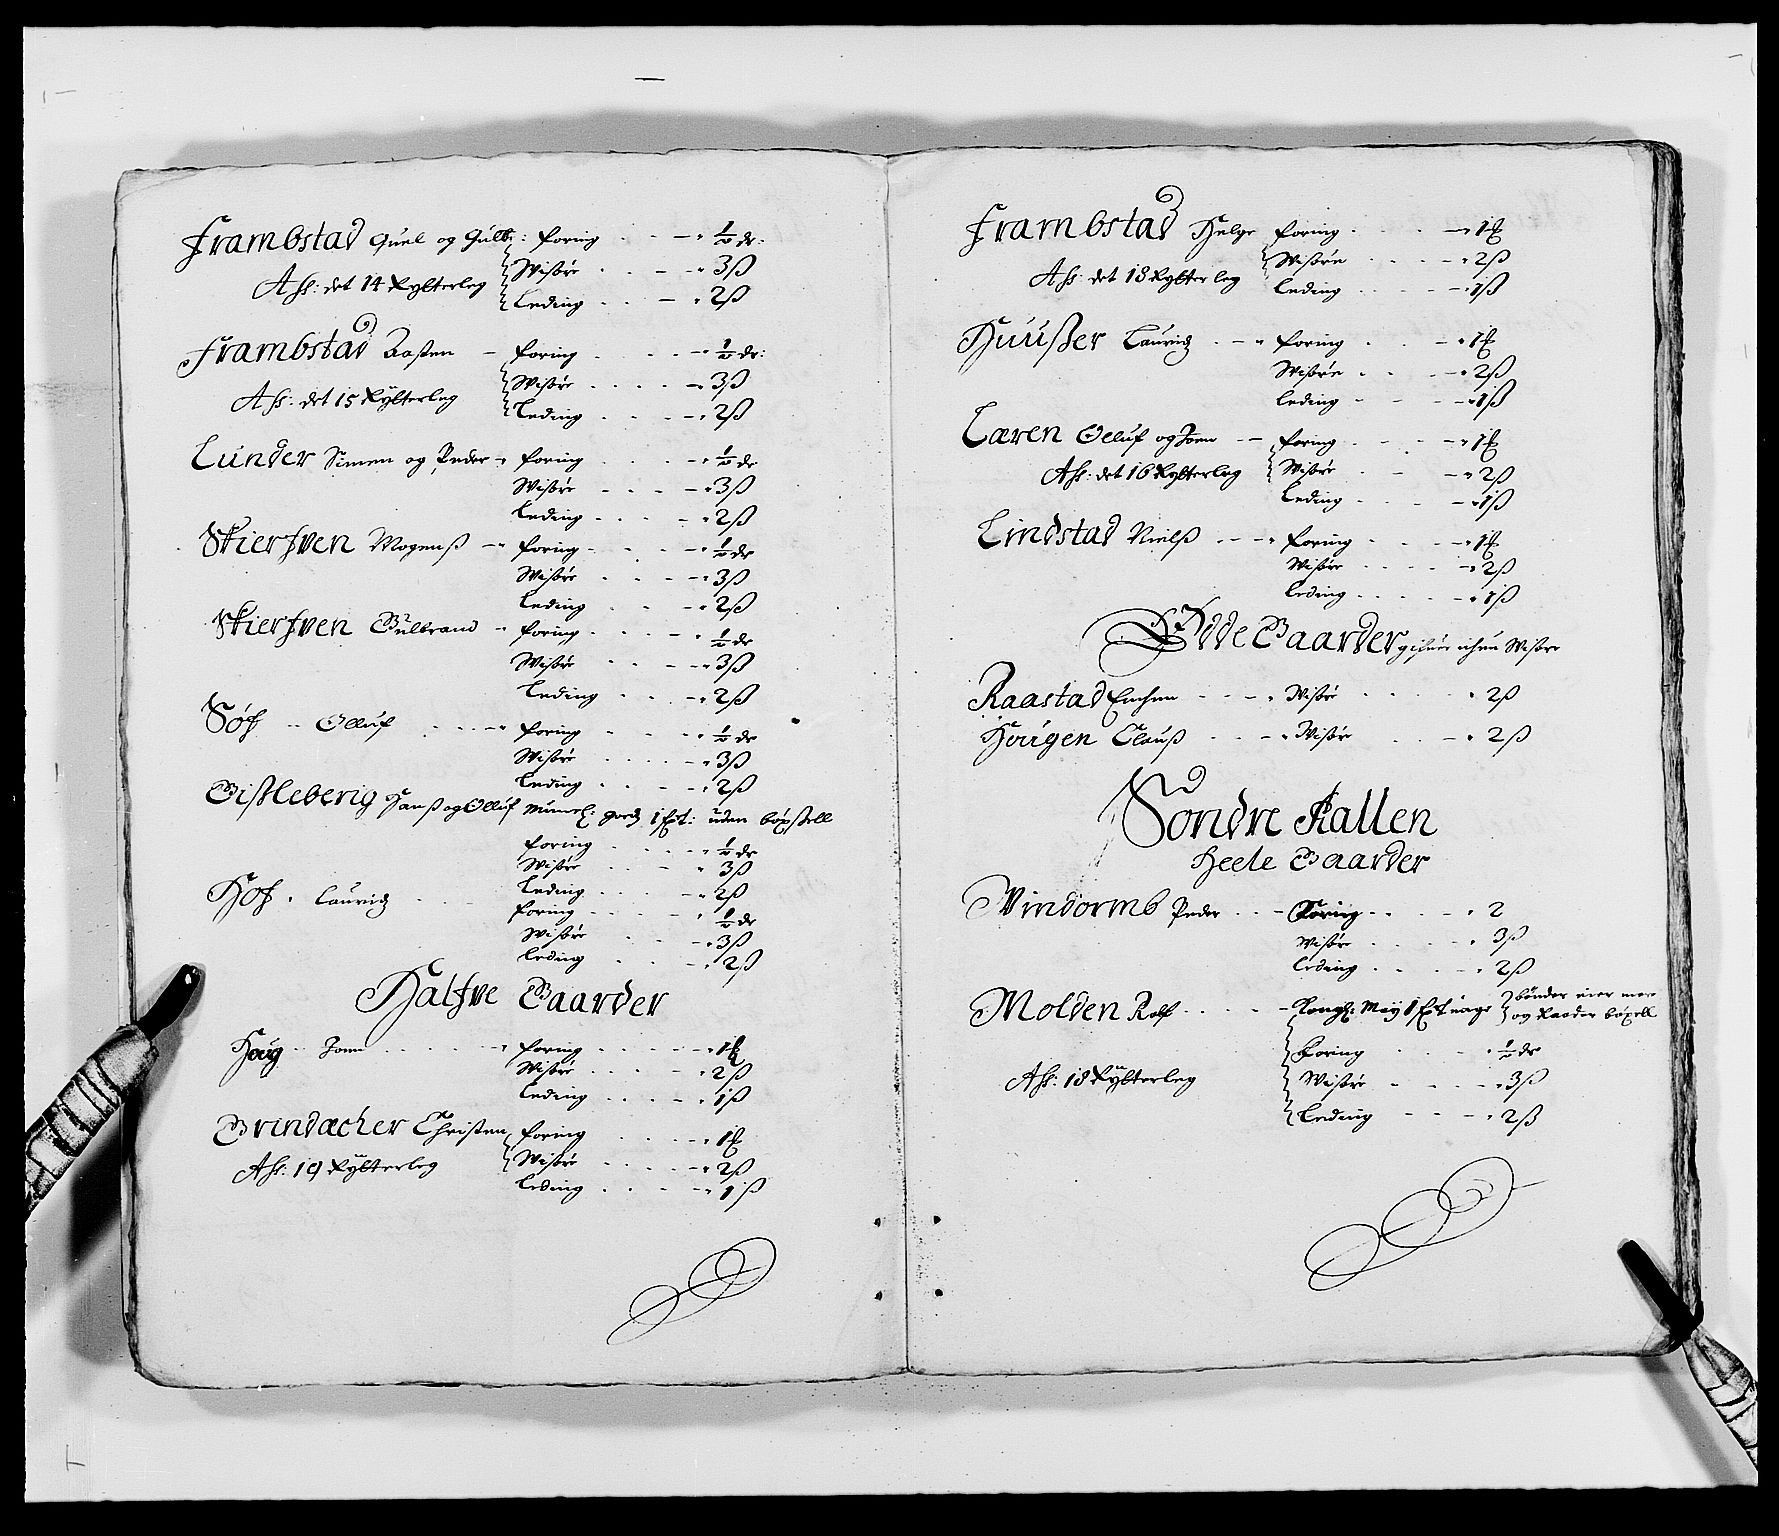 Frambstad Guel og Gulb: foring - - - ½ dr:
Wisøre - - - 3ß
Afk: det 14 Rÿtterleg
Leding - - - 2ß
Frambstad Basten - foring - - - ½ dr:
Wisøre - - - 3ß
Afk: det 15 Rÿtterleg
Leding - - - 2ß
Lunder Simen og Peder - foring - - - ½ dr
Wisøre - - - 3ß
Leding - - - 2ß
Skierfven Mogenß - foring - - - ½ dr
Wisøre - - - 3ß
Leding - - - 2ß
Skierfven Gulbrand - foring - - - ½ dr
Wisøre - - - 3ß
Leding - - - 2ß
Høf - Olluf - - - foring - - - ½ dr
Wisøre - - - 3ß
Leding - - - 2ß
Gisleberig Hanß og Olluf gods 1 uden bøxsell
foring - - - ½ dr
Wisøre - - - 3ß
Leding - - - 2ß
Hof - Lauridz - - - foring - - - ½ dr
Wisøre - - - 3ß
Leding - - - 2ß
Halfve Gaarder
Houg - Joen - - - foring - - - 1
Wisøre - - - 2ß
Leding - - - 1ß
Grindacher Christen foring - - - 1
Afk: 19 Rÿtterleg
Wisøre - - - 2ß
Leding - - - 1ß
Frambstad Helge foring - - - 1
Wisøre - - - 2ß
Afk: det 18 Rÿtterleg
Leding - - - 1ß
Huußer Lauridz - - - foring - - - 1
Wisøre - - - 2ß
Leding - - - 1ß
Læren Olluf og Joen - foring - - - 1
Afk: det 16 Rÿtterleg
Wisøre - - - 2ß
Leding - - - 1ß
Lindstad Nielß - - - foring - - - 1
Wisøre - - - 2ß
Leding - - - 1ß
Ødde Gaarder Wisøre
Raastad - - - Wisøre - - - 2ß
Hougen Clauß - - - Wisøre - - - 2ß
Søndre Aallen
Heele Gaarder
Windormb Peder - - - Foring - - - 2
Wisøre - - - 3ß
Leding - - - 2ß
Molden Rolf - - - Kongl: May 1 bønder eier mere
og Raader bøxell
Foring - - - ½ dr
Afk: 18 Rÿtterleg
Wisøre - - - 3ß
Leding - - - 2ß